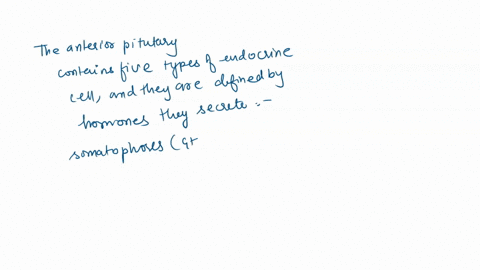 The anterior pitutary
contains five types of endocrine
cell, and they are defined by
hormones they secrete :-
somatophores (GH